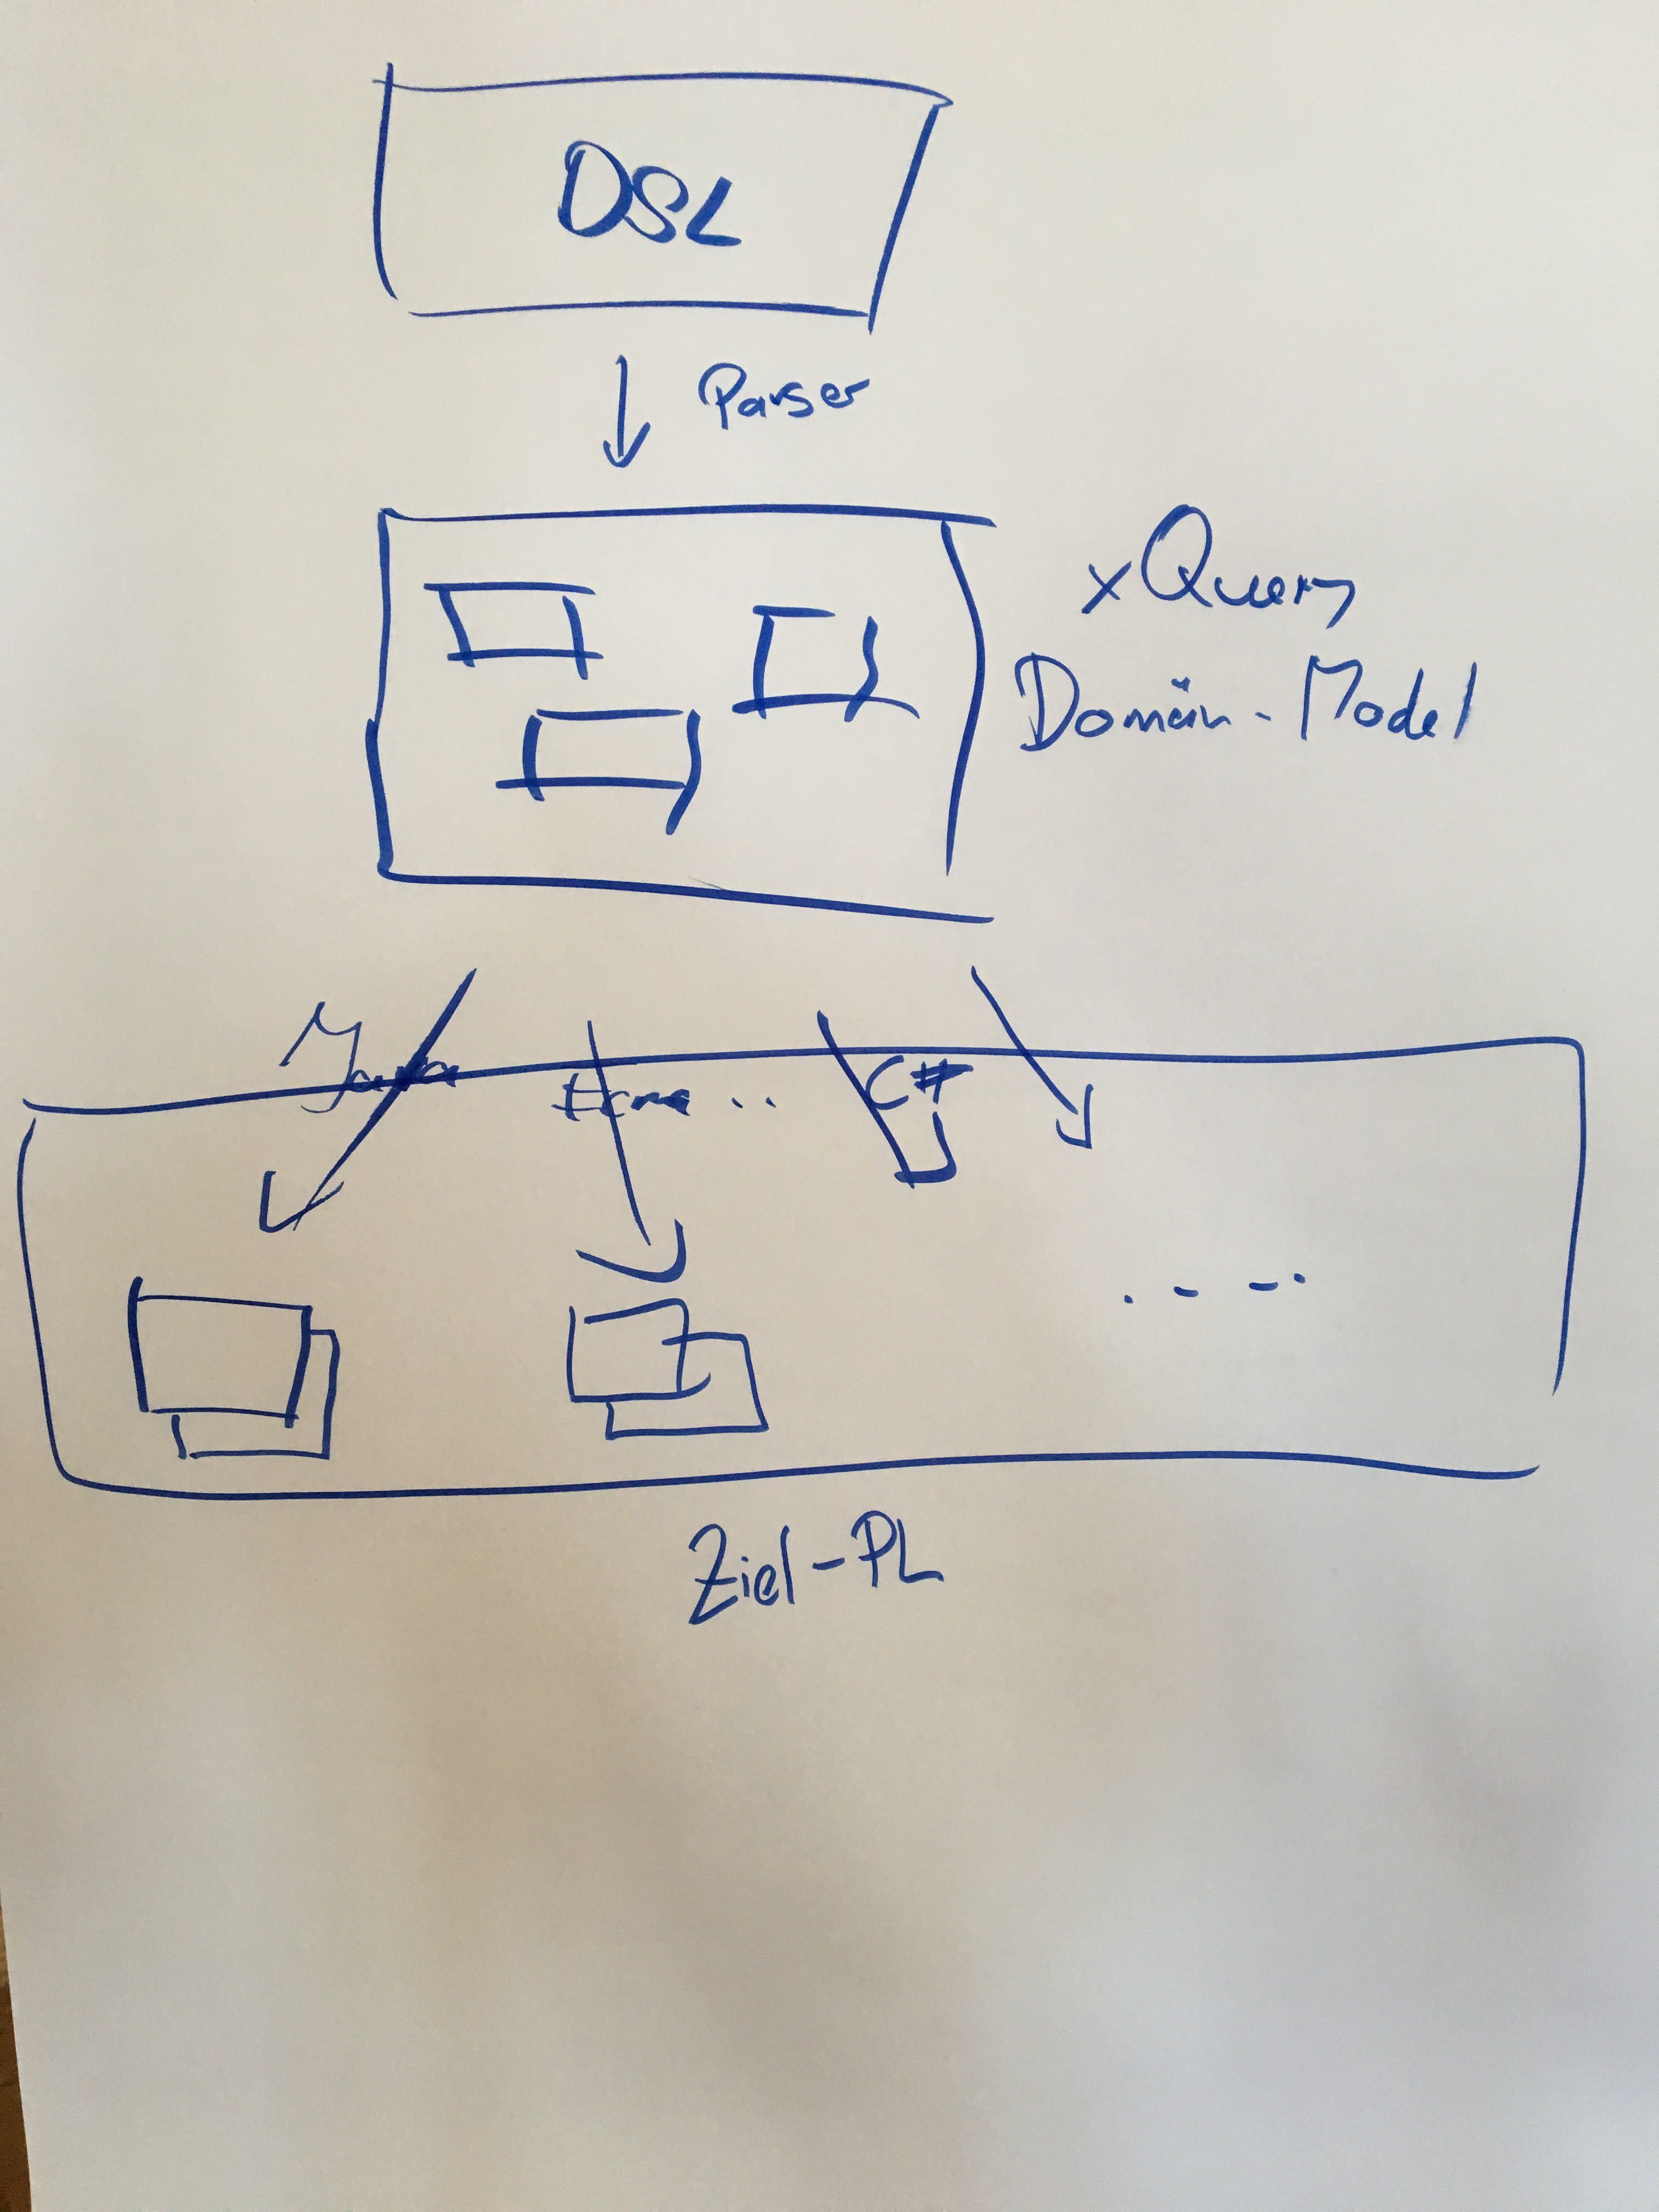 DSL
Parser
xQuery
Domän-Model
Java
Ecma ..
C#
....
Ziel-PL